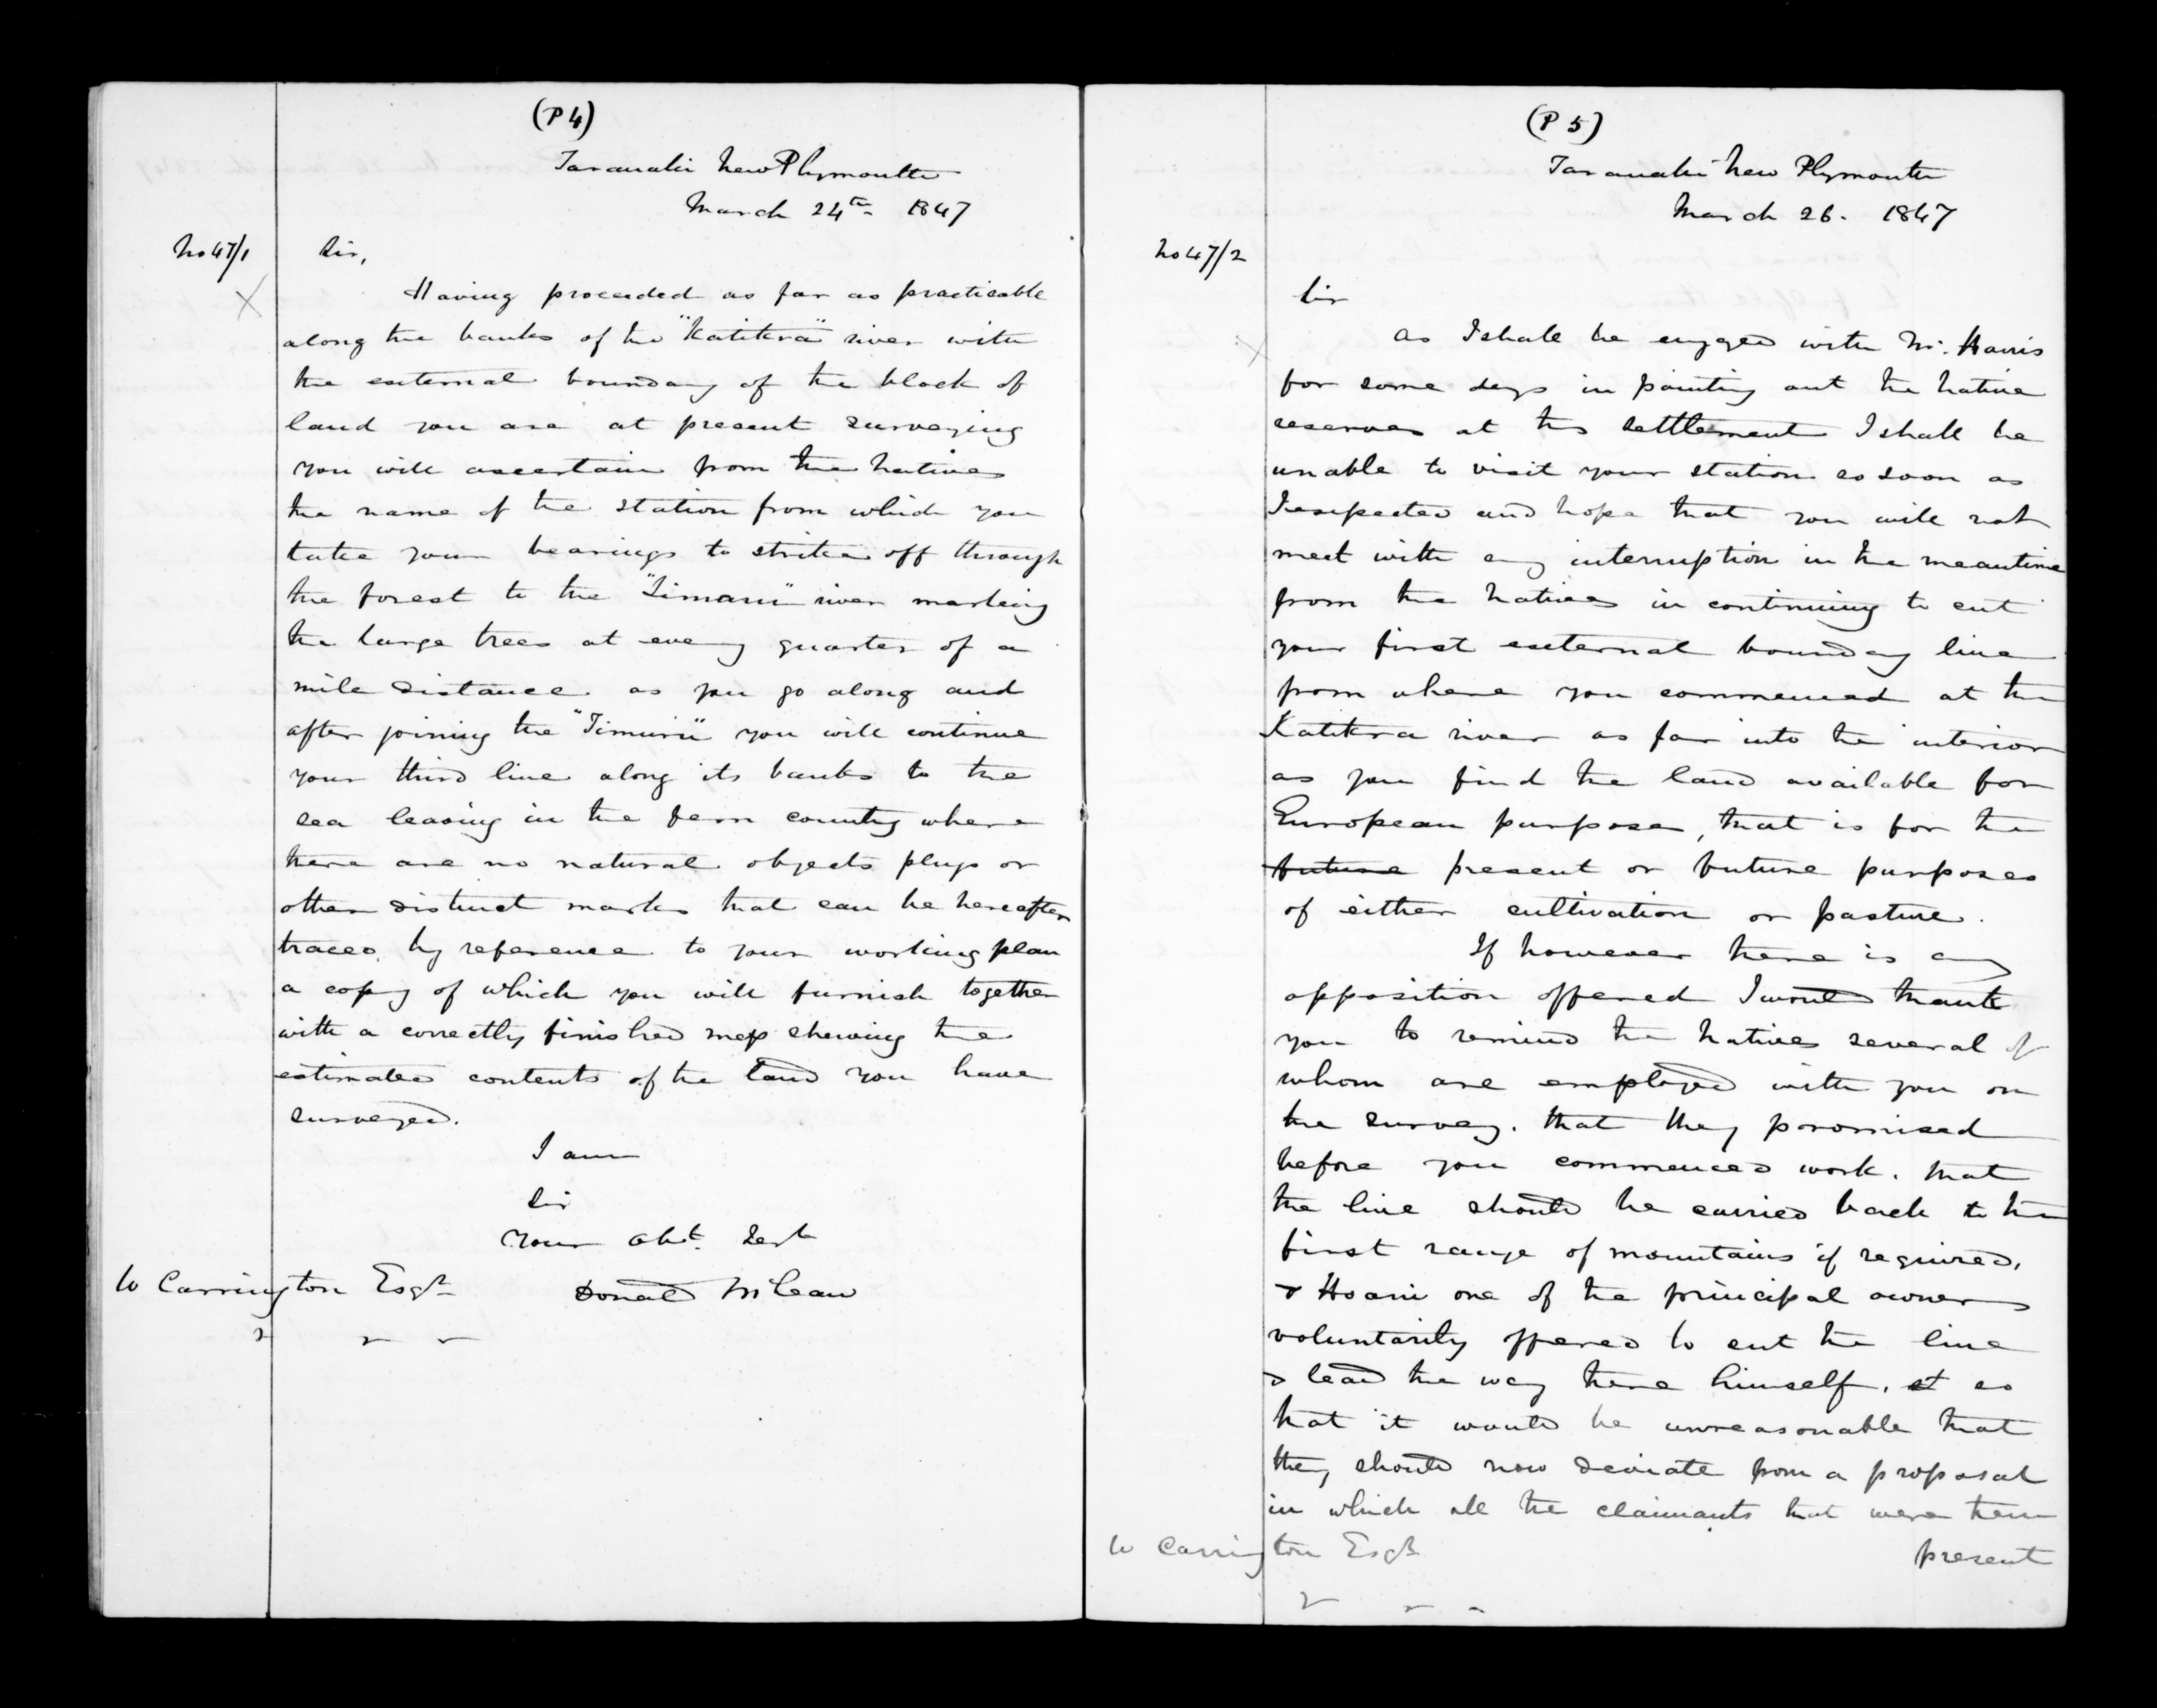 (P 4)
Taranaki New Plymouth
March 24th 1847
No 47/1
Sir,
Having proceeded as far as practicable
along the banks of the "Katikra" river with
the external boundary of the block of
land you are at present surveying
you will ascertain from the natives
the name of the station from which you
take your bearings to strike off through
the forest to the "Timaru" river marking
the large trees at every quarter of a
mile distance as you go along and
after joining the "Timuru" you will continue
your third line along its banks to the
sea leaving in the fern country where
there are no natural objects plugs or
other distinct marks that can be hereafter
traced by reference to your working plan
a copy of which you will furnish together
with a correctly finished map shewing the
estimated contents of the land you have
surveyed.
I am
Sir
Your Obt. Servt
W Carrington Esqr
Donald McLean
(P 5)
Taranaki New Plymouth
March 26. 1847
No 47/2
Sir
As I shall be engaged with Mr. Harris
for some days in pointing out the native
reserves at this settlement I shall be
unable to visit your station so soon as
I expected and hope that you will not
meet with any interruption in the meantime
from the natives in continuing to cut
your first external boundary line
from where you commenced at the
Katikra river as far into the interior
as you find the land available for
European purposes, that is for the
future present or future purposes
of either cultivation or pasture.
If however there is any
opposition offered I would thank
you to remind the natives several of
whom are employed with you on
the survey. that they promised
before you commenced work. that
the line should be carried back to the
first range of mountains if required,
& Hoani one of the principal owners
voluntarily offered to cut the line
& lead the way there himself. st so
that it would be unreasonable that
they should now deviate from a proposal
in which all the claimants that were then
present
W Carrington Esqr